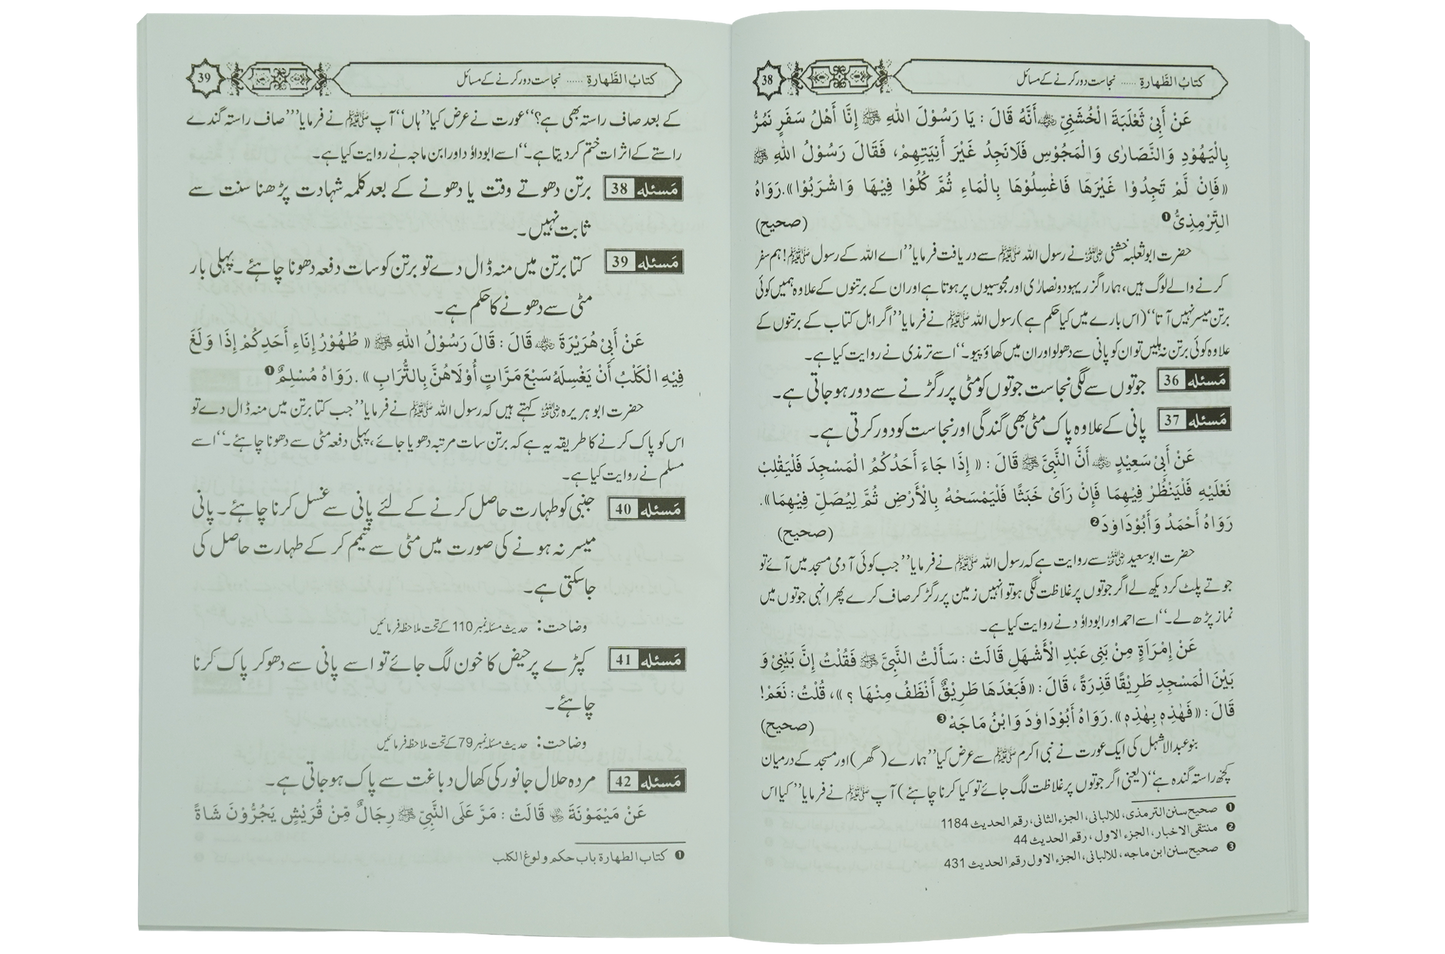 38
کتابُ الطَّہارةِ ...... نجاست دور کرنے کے مسائل
عَنْ أَبِیْ ثَعْلَبَةَ الْخُشَنِیِّ ﷜ أَنَّهُ قَالَ : یَا رَسُوْلَ اللهِ ﷺ إِنَّا أَهْلُ سَفَرٍ نَمُرُّ
بِالْیَهُوْدِ وَالنَّصَارٰی وَالْمَجُوْسِ فَلَانَجِدُ غَیْرَ آنِیَتِهِمْ، فَقَالَ رَسُوْلُ اللهِ ﷺ
«فَإِنْ لَمْ تَجِدُوْا غَیْرَهَا فَاغْسِلُوْهَا بِالْمَاءِ ثُمَّ كُلُوْا فِیْهَا وَاشْرَبُوْا».رَوَاهُ
التِّرْمِذِیُّ❶ (صحیح)
حضرت ابوثعلبہ خشنی ﷜ نے رسول اللہ ﷺ سے دریافت فرمایا’’اے اللہ کے رسول ﷺ! ہم سفر
کرنے والے لوگ ہیں، ہمارا گزر یہود و نصاریٰ اور مجوسیوں پر ہوتا ہے اور ان کے برتنوں کے علاوہ ہمیں کوئی
برتن میسر نہیں آتا‘‘(اس بارے میں کیا حکم ہے) رسول اللہ ﷺ نے فرمایا’’اگر اہل کتاب کے برتنوں کے
علاوہ کوئی برتن نہ ملیں تو ان کو پانی سے دھولو اور ان میں کھاؤ پیو۔‘‘ اسے ترمذی نے روایت کیا ہے۔
مَسئلہ 36 جوتوں سے لگی نجاست جوتوں کو مٹی پر رگڑنے سے دور ہوجاتی ہے۔
مَسئلہ 37 پانی کے علاوہ پاک مٹی بھی گندگی اور نجاست کو دور کرتی ہے۔
عَنْ أَبِیْ سَعِیْدٍ ﷜ أَنَّ النَّبِیَّ ﷺ قَالَ : « إِذَا جَاءَ أَحَدُكُمُ الْمَسْجِدَ فَلْیَقْلِبْ
نَعْلَیْهِ فَلْیَنْظُرْ فِیْهِمَا فَإِنْ رَأَیٰ خَبَثًا فَلْیَمْسَحْهُ بِالْأَرْضِ ثُمَّ لِیُصَلِّ فِیْهِمَا».
رَوَاهُ أَحْمَدُ وَأَبُوْدَاوٗدَ❷ (صحیح)
حضرت ابوسعید ﷜ سے روایت ہے کہ رسول اللہ ﷺ نے فرمایا’’جب کوئی آدمی مسجد میں آئے تو
جوتے پلٹ کر دیکھ لے اگر جوتوں پر غلاظت لگی ہو تو انہیں زمین پر رگڑ کر صاف کرے پھر انہی جوتوں میں
نماز پڑھ لے۔‘‘ اسے احمد اور ابوداؤد نے روایت کیا ہے۔
عَنْ إِمْرَأَةٍ مِنْ بَنِی عَبْدِ الْأَشْهَلِ قَالَتْ : سَأَلْتُ النَّبِیَّ ﷺ فَقُلْتُ إِنَّ بَیْنِیْ وَ
بَیْنَ الْمَسْجِدِ طَرِیْقًا قَذِرَةً ، قَالَ: «فَبَعْدَهَا طَرِیْقٌ أَنْظَفُ مِنْهَا ؟»، قُلْتُ: نَعَمْ!
قَالَ: «فَهٰذِهٖ بِهٰذِهٖ».رَوَاهُ أَبُوْدَاوٗدَ وَابْنُ مَاجَهْ❸ (صحیح)
بنو عبدالاشہل کی ایک عورت نے نبی اکرم ﷺ سے عرض کیا’’ہمارے (گھر) اور مسجد کے درمیان
کچھ راستہ گندہ ہے‘‘(یعنی اگر جوتوں پر غلاظت لگ جائے تو کیا کرنا چاہئے) آپ ﷺ نے فرمایا’’کیا اس
❶ صحیح سنن الترمذی، للالبانی، الجزء الثانی، رقم الحدیث 1184
❷ منتقی الاخبار، الجزء الاول ، رقم الحدیث 44
❸ صحیح سنن ابن ماجه، للالبانی، الجزء الاول رقم الحدیث 431
39
کتابُ الطَّہارةِ ...... نجاست دور کرنے کے مسائل
کے بعد صاف راستہ بھی ہے؟‘‘ عورت نے عرض کیا’’ہاں‘‘ آپ ﷺ نے فرمایا’’’صاف راستہ گندے
راستے کے اثرات ختم کردیتا ہے۔‘‘ اسے ابوداؤد اور ابن ماجہ نے روایت کیا ہے۔
مَسئلہ 38 برتن دھوتے وقت یا دھونے کے بعد کلمہ شہادت پڑھنا سنت سے
ثابت نہیں۔
مَسئلہ 39 کتا برتن میں منہ ڈال دے تو برتن کو سات دفعہ دھونا چاہئے۔ پہلی بار
مٹی سے دھونے کا حکم ہے۔
عَنْ أَبِیْ هُرَیْرَةَ ﷜ قَالَ : قَالَ رَسُوْلُ اللهِ ﷺ « طُهُوْرُ إِنَاءِ أَحَدِكُمْ إِذَا وَلَغَ
فِیْهِ الْكَلْبُ أَنْ یَغْسِلَهُ سَبْعَ مَرَّاتٍ أُوْلَاهُنَّ بِالتُّرَابِ » .رَوَاهُ مُسْلِمٌ❶
حضرت ابوہریرہ ﷜ کہتے ہیں کہ رسول اللہ ﷺ نے فرمایا’’جب کتا برتن میں منہ ڈال دے تو
اس کو پاک کرنے کا طریقہ یہ ہے کہ برتن سات مرتبہ دھویا جائے، پہلی دفعہ مٹی سے دھونا چاہئے۔‘‘ اسے
مسلم نے روایت کیا ہے۔
مَسئلہ 40 جنبی کو طہارت حاصل کرنے کے لئے پانی سے غسل کرنا چاہئے۔ پانی
میسر نہ ہونے کی صورت میں مٹی سے تیمم کر کے طہارت حاصل کی
جاسکتی ہے۔
وضاحت: حدیث مسئلہ نمبر 110 کے تحت ملاحظہ فرمائیں
مَسئلہ 41 کپڑے پر حیض کا خون لگ جائے تو اسے پانی سے دھوکر پاک کرنا
چاہئے۔
وضاحت: حدیث مسئلہ نمبر 79 کے تحت ملاحظہ فرمائیں
مَسئلہ 42 مردہ حلال جانور کی کھال دباغت سے پاک ہوجاتی ہے۔
عَنْ مَیْمُوْنَةَ ﷞ قَالَتْ : مَرَّ عَلَی النَّبِیِّ ﷺ رِجَالٌ مِّنْ قُرَیْشٍ یَجُرُّوْنَ شَاةً
❶ کتاب الطهارة باب حکم ولوغ الکلب